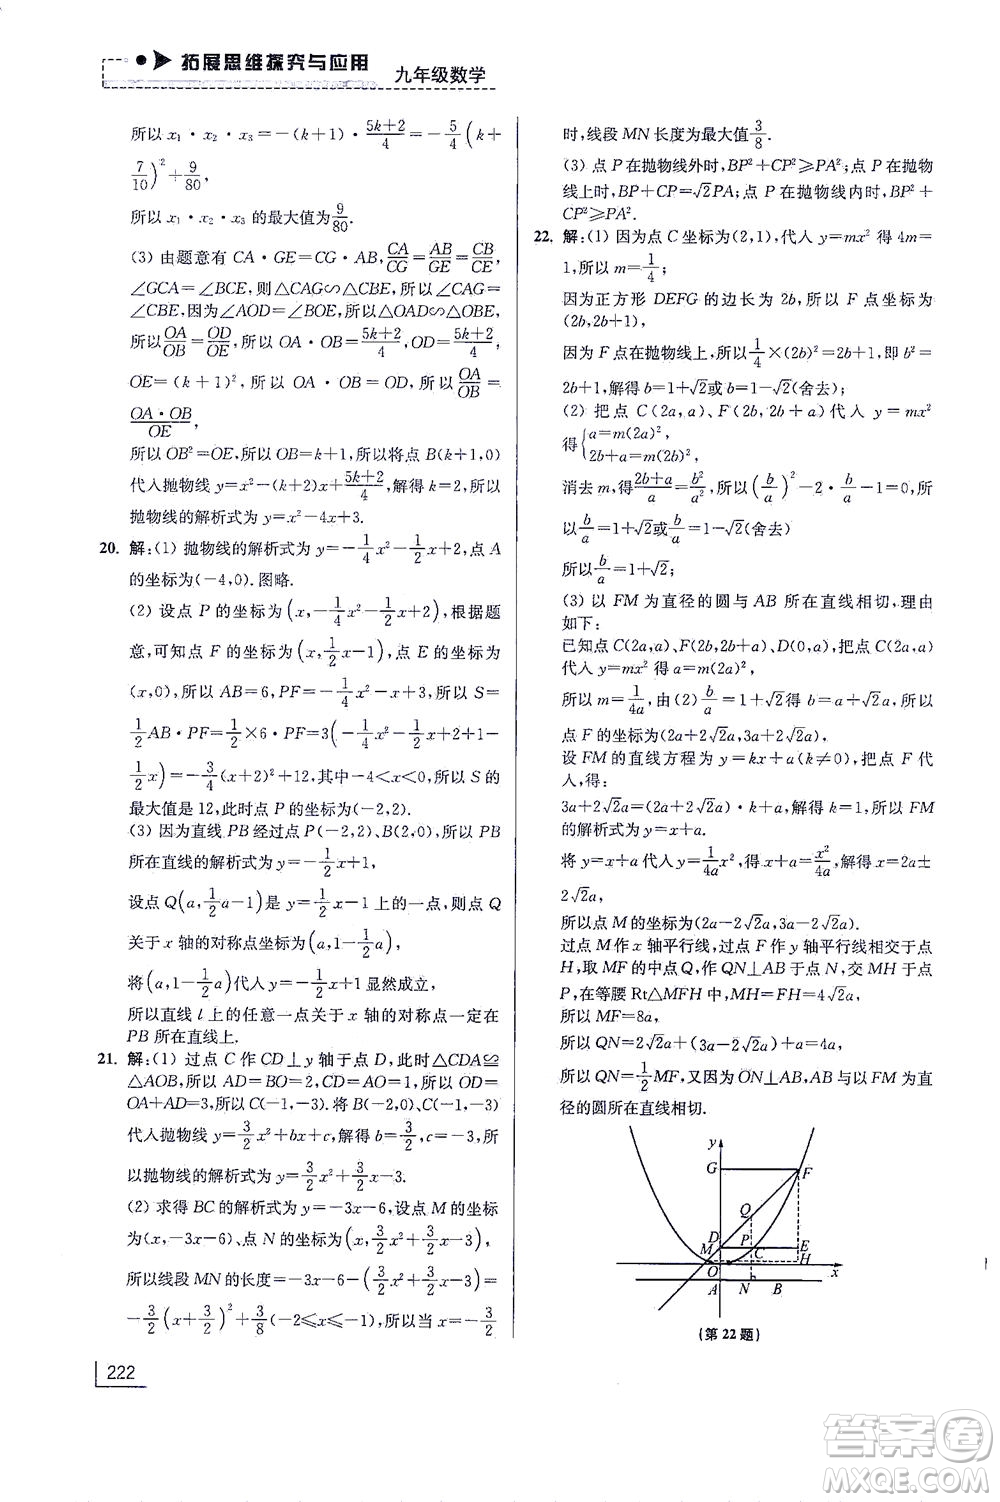 拓展思维探究与应用
九年级数学
所以 x₁·x₂·x₃=-(k+1)·(5k+2)/4=-5/4(k+
7/10)²+9/80,
所以 x₁·x₂·x₃ 的最大值为9/80.
(3) 由题意有 CA·GE=CG·AB,CA/CG=AB/GE=CB/CE,
∠GCA=∠BCE,则△CAG∽△CBE,所以∠CAG=
∠CBE,因为∠AOD=∠BOE,所以△OAD∽△OBE,
所以OA/OB=OD/OE,所以 OA·OB=(5k+2)/4,OD=(5k+2)/4,
OE=(k+1)²,所以 OA·OB=OD,所以OA/OB=
OA·OB/OE,
所以 OB²=OE,所以 OB=k+1,所以将点 B(k+1,0)
代入抛物线 y=x²-(k+2)x+(5k+2)/4,解得 k=2,所以
抛物线的解析式为 y=x²-4x+3.
20. 解:(1) 抛物线的解析式为 y=-1/4x²-1/2x+2,点 A
的坐标为(-4,0).图略.
(2) 设点 P 的坐标为(x,-1/4x²-1/2x+2),根据题
意,可知点 F 的坐标为(x,1/2x-1),点 E 的坐标为
(x,0),所以 AB=6,PF=-1/4x²-x+3,所以 S=
1/2AB·PF=1/2×6·PF=3(-1/4x²-1/2x+2+1-
1/2x)=-3/4(x+2)²+12,其中-4<x<2,所以 S 的
最大值是 12,此时点 P 的坐标为(-2,2).
(3) 因为直线 PB 经过点 P(-2,2)、B(2,0),所以 PB
所在直线的解析式为 y=-1/2x+1,
设点 Q(a,1/2a-1)是 y=1/2x-1 上的一点,则点 Q
关于 x 轴的对称点坐标为(a,1-1/2a),
将(a,1-1/2a)代入 y=-1/2x+1显然成立,
所以直线 l 上的任意一点关于 x 轴的对称点一定在
PB 所在直线上.
21. 解:(1) 过点 C 作 CD⊥y 轴于点 D,此时△CDA≌
△AOB,所以 AD=BO=2,CD=AO=1,所以 OD=
OA+AD=3,所以 C(-1,-3).将 B(-2,0)、C(-1,-3)
代入抛物线 y=3/2x²+bx+c,解得 b=3/2,c=-3,所
以抛物线的解析式为 y=3/2x²+3/2x-3.
(2) 求得 BC 的解析式为 y=-3x-6,设点 M 的坐标
为(x,-3x-6),点 N 的坐标为(x,3/2x²+3/2x-3),
所以线段 MN 的长度=-3x-6-(3/2x²+3/2x-3)=
-3/2(x+3/2)²+3/8(-2≤x≤-1),所以当 x=-3/2
222
时,线段 MN 长度为最大值3/8.
(3) 点 P 在抛物线外时,BP²+CP²≥PA²;点 P 在抛物
线上时,BP+CP=√2PA;点 P 在抛物线内时,BP²+
CP²≥PA².
22. 解:(1) 因为点 C 坐标为(2,1),代入 y=mx² 得 4m=
1,所以 m=1/4;
因为正方形 DEFG 的边长为 2b,所以 F 点坐标为
(2b,2b+1),
因为 F 点在抛物线上,所以1/4×(2b)²=2b+1,即 b²=
2b+1,解得 b=1+√2或 b=1-√2(舍去);
(2) 把点 C(2a,a)、F(2b,2b+a)代入 y=mx²
得{a=m(2a)²,
2b+a=m(2b)²,
消去 m,得(2b+a)/a=b²/a²,所以(b/a)²-2·b/a-1=0,所
以b/a=1+√2或b/a=1-√2(舍去)
所以b/a=1+√2;
(3) 以 FM 为直径的圆与 AB 所在直线相切,理由
如下:
已知点 C(2a,a)、F(2b,2b+a)、D(0,a),把点 C(2a,a)
代入 y=mx² 得 a=m(2a)²,
所以 m=1/4a,由(2)b/a=1+√2得 b=a+√2a,所以
点 F 的坐标为(2a+2√2a,3a+2√2a),
设 FM 的直线方程为 y=kx+a(k≠0),把点 F 代
入,得:
3a+2√2a=(2a+2√2a)·k+a,解得 k=1,所以 FM
的解析式为 y=x+a.
将 y=x+a 代入 y=1/4a x²,得 x+a=x²/4a,解得 x=2a±
2√2a,
所以点 M 的坐标为(2a-2√2a,3a-2√2a),
过点 M 作 x 轴平行线,过点 F 作 y 轴平行线相交于点
H,取 MF 的中点 Q,作 QN⊥AB 于点 N,交 MH 于点
P,在等腰 Rt△MFH 中,MH=FH=4√2a,
所以 MF=8a,
所以 QN=2√2a-(2√2a-2a)+2a=4a,
所以 QN=1/2MF,又因为 QN⊥AB,所以以 FM 为直
径的圆所在直线相切.
y
G
F
Q
D
P
E
M
C
H
O
x
A
N
B
(第 22 题)
答案卷
MXQE.COM